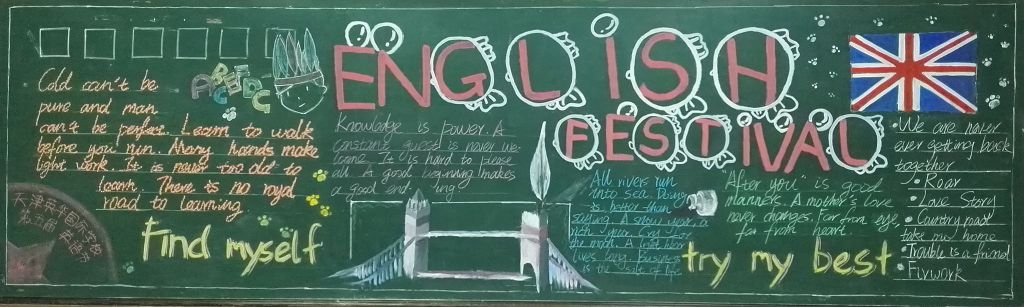 ENGLISH
FESTIVAL
Cold can't be
pure and man
can't be perfect. Learn to walk
before you run. Many hands make
light work. It is never too old to
learn. There is no royal
road to learning.
Find myself
Knowledge is power. A
constant guest is never we-
lcome. It is hard to please
all. A good beginning makes
a good ending
All rivers run
into sea. Doing
is better than
saying. A snow year, a
rich year. Cry for
the moon. A light heart
lives long. Business
is the salt of life.
"After you" is good
manners. A mother's love
never changes. Far from eye,
far from heart
try my best
•We are never
ever getting back
together
•Roar
•Love Story
•Country road
take me home
•Trouble is a friend
•Firwork
天津英华国际学校
第五届 英语节